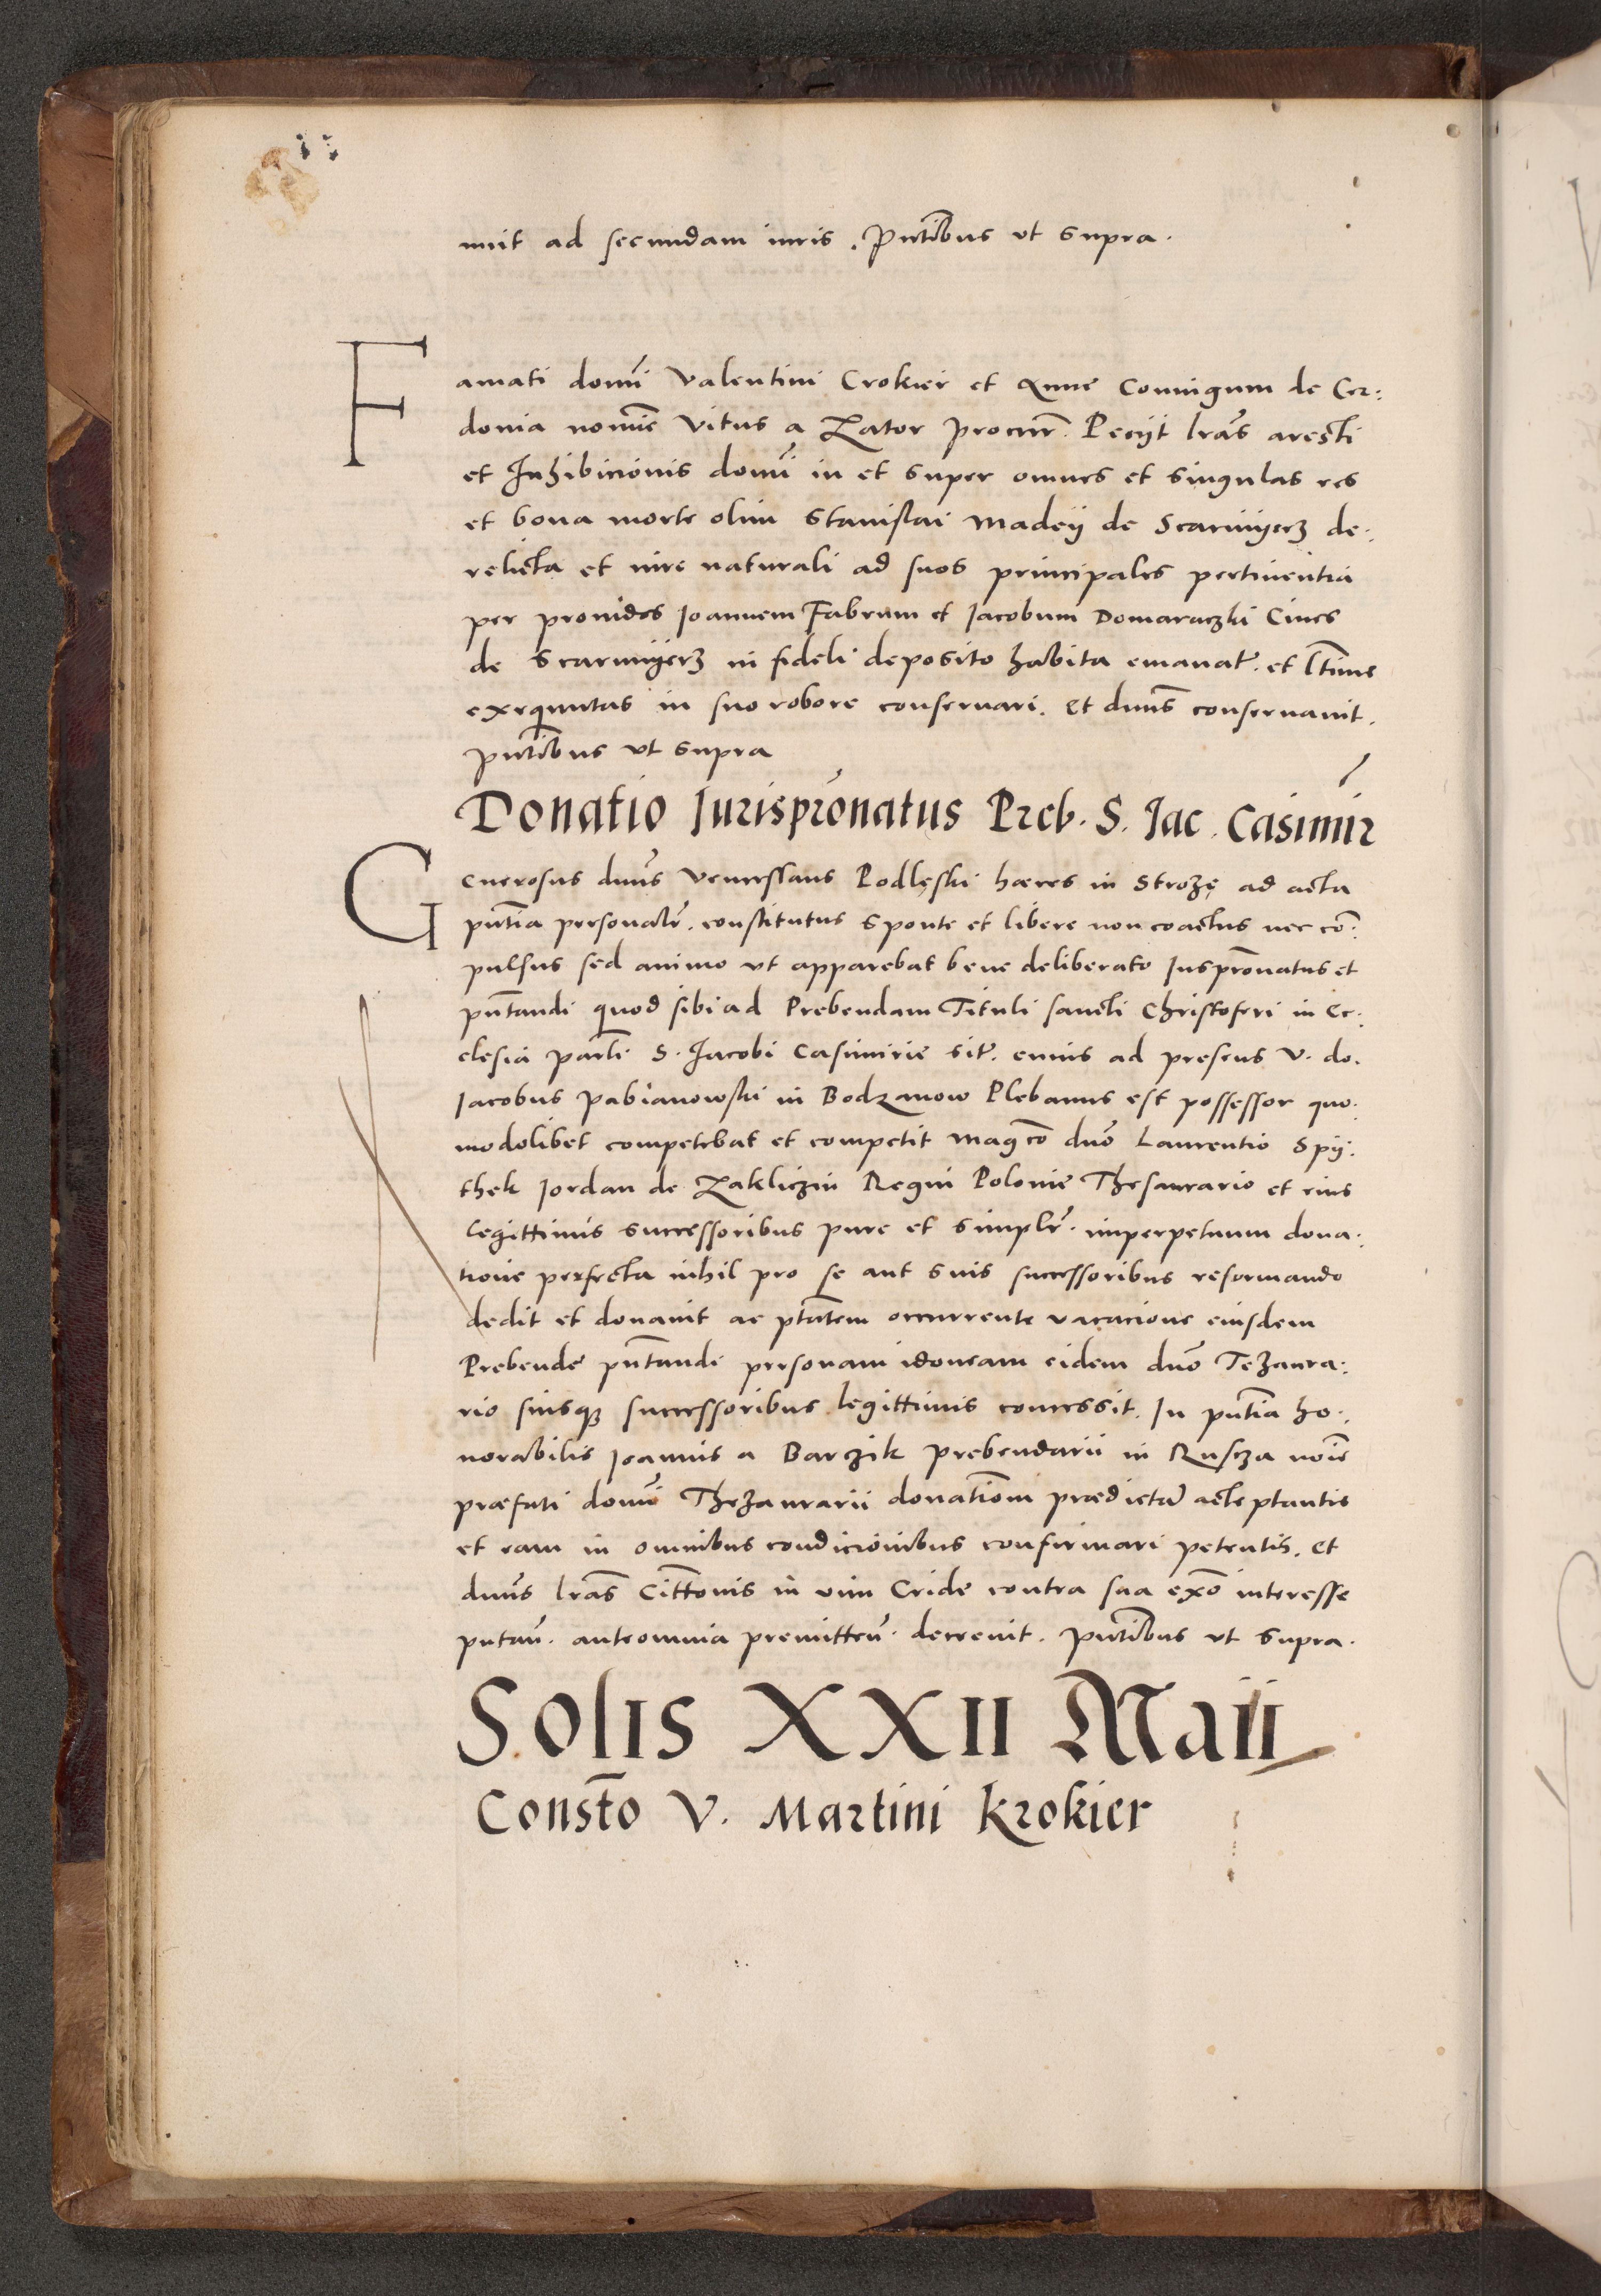 nuit ad secundam iuris . Pntibus ut supra .
Famati domi Valentini Crokier et Anne Coniugum de Cer:
donia nomie Vitus a Zator Procur . Peciit lras aresti
et Inhibicionis domi in et super omnes et singulas res
et bona morte olim Stanislai Madeij de Scarmijerz de:
relicta et iure naturali ad suos principales pertinentia
per prouidos Ioannem Fabrum et Iacobum Domaraczki Ciues
de Scarmijerz in fideli deposito habita emanatas . et ltime
exequutas in suo robore conseruari . Et dnus conseruauit .
pntibus ut supra
Donatio Jurispronatus Preb. S. Jac. Casimir
Generosus dnus Venceslaus Podlęski hæres in Strozę ad acta
pntia personalr . constitutus sponte et libere non coactus nec co:
pulsus sed animo ut apparebat bene deliberato Iuspronatus et
pntandi quod sibi ad Prebendam Tituli sancti Christoferi in Ec:
clesia parli S. Iacobi Casimirie sit . cuius ad presens V. do.
Iacobus Pabianowski in Bodzanow Plebanus est possessor quo:
modolibet competebat et competit Magco dno Laurentio Spij:
thek Iordan de Zakliczin Regni Polonie Thesaurario et eius
legittimis successoribus pure et simplr . imperpetuum dona:
tione prefecta nihil pro se aut suis successoribus reseruando
dedit et donauit ac ptatem occurrente vacacione eiusdem
Prebende pntandi personam idoneam eidem dno Tezaura:
rio suisque successoribus legittimis concessit . In pntia ho:
norabilis Ioannis a Barczik prebendarii in Ruscza noie
præfati domi Thezaurarii donationem prædictam acceptantis
et eam in omnibus condicionibus confirmari petentis . Et
dnus lras Cittonis in vim Cride contra sua exo interesse
putan . anteomnia premitten . decreuit . pntibus ut supra .
Solis XXII Maii
Consto V. Martini Krokier